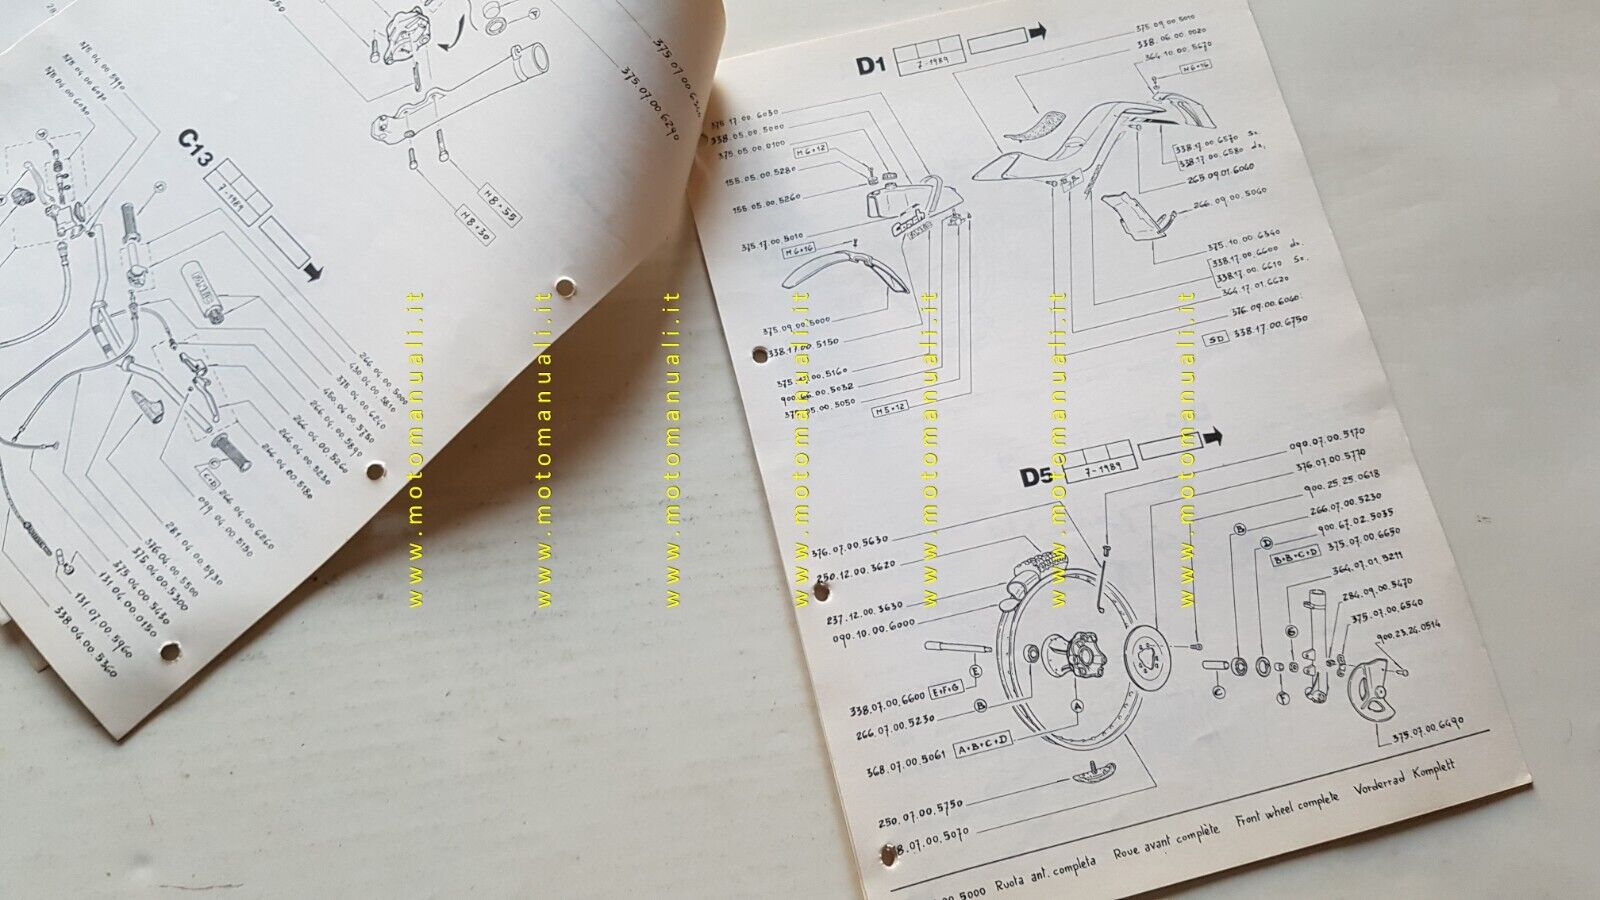 28
375.04.00.5990
375.04.00.6070
375.04.00.6030
C13
7-1989
375.07.00.6290
M8×55
M8×30
266.04.00.5000
430.04.00.5810
375.04.00.6240
450.04.00.5780
266.04.00.5890
266.04.00.5260
266.04.00.5230
266.04.00.5180
C+D
266.04.00.6260
099.04.00.5150
281.04.00.5930
376.04.00.5500
375.04.00.5300
375.04.00.5430
131.04.00.0150
131.07.00.5960
338.04.00.5360
D1
7-1989
375.09.00.5010
338.06.00.0020
364.10.00.5670
M6×16
375.17.00.6030
338.05.00.5000
375.05.00.0100
M6×12
155.05.00.5280
155.05.00.5260
375.17.00.5010
M6×16
375.09.00.5000
338.17.00.5150
900.66.00.5032
375.05.00.5050
M5×12
338.17.00.6570 Sx.
338.17.00.6580 dx.
265.09.01.6060
266.09.00.5040
375.10.00.6340
338.17.00.6600 dx.
338.17.00.6610 Sx.
364.17.01.6620
376.09.00.6060
SD 338.17.00.6750
D5
7-1989
090.07.00.5170
376.07.00.5770
900.25.25.0618
266.07.00.5230
900.67.02.5035
B+B+C+D 375.07.00.6650
364.07.01.5211
284.09.00.5470
375.07.00.6540
900.23.26.0514
376.07.00.5630
250.12.00.3620
237.12.00.3630
090.10.00.6000
338.07.00.6600 E+F+G
266.07.00.5230
368.07.00.5061 A+B+C+D
250.07.00.5750
8.07.00.5070
E
B
A
B
D
G
C
F
375.07.00.6490
00.5000 Ruota ant. completa Roue avant complète Front wheel complete Vorderrad Komplett
www.motomanuali.it
www.motomanuali.it
www.motomanuali.it
www.motomanuali.it
www.motomanuali.it
www.motomanuali.it
www.motomanuali.it